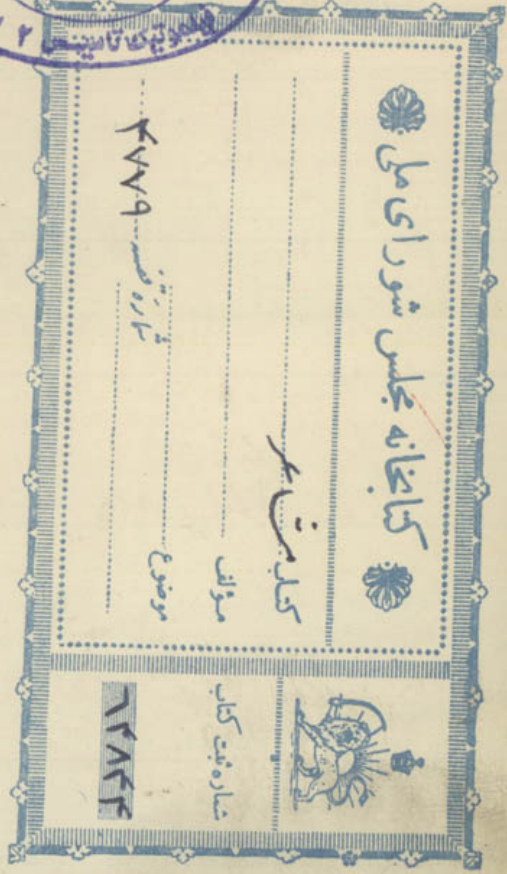 کتابخانه مجلس شورای ملی
کتاب مشاعر
مؤلف
موضوع
شماره قفسه ۴۷۷۹
شماره ثبت کتاب
۶۴۸۴۴